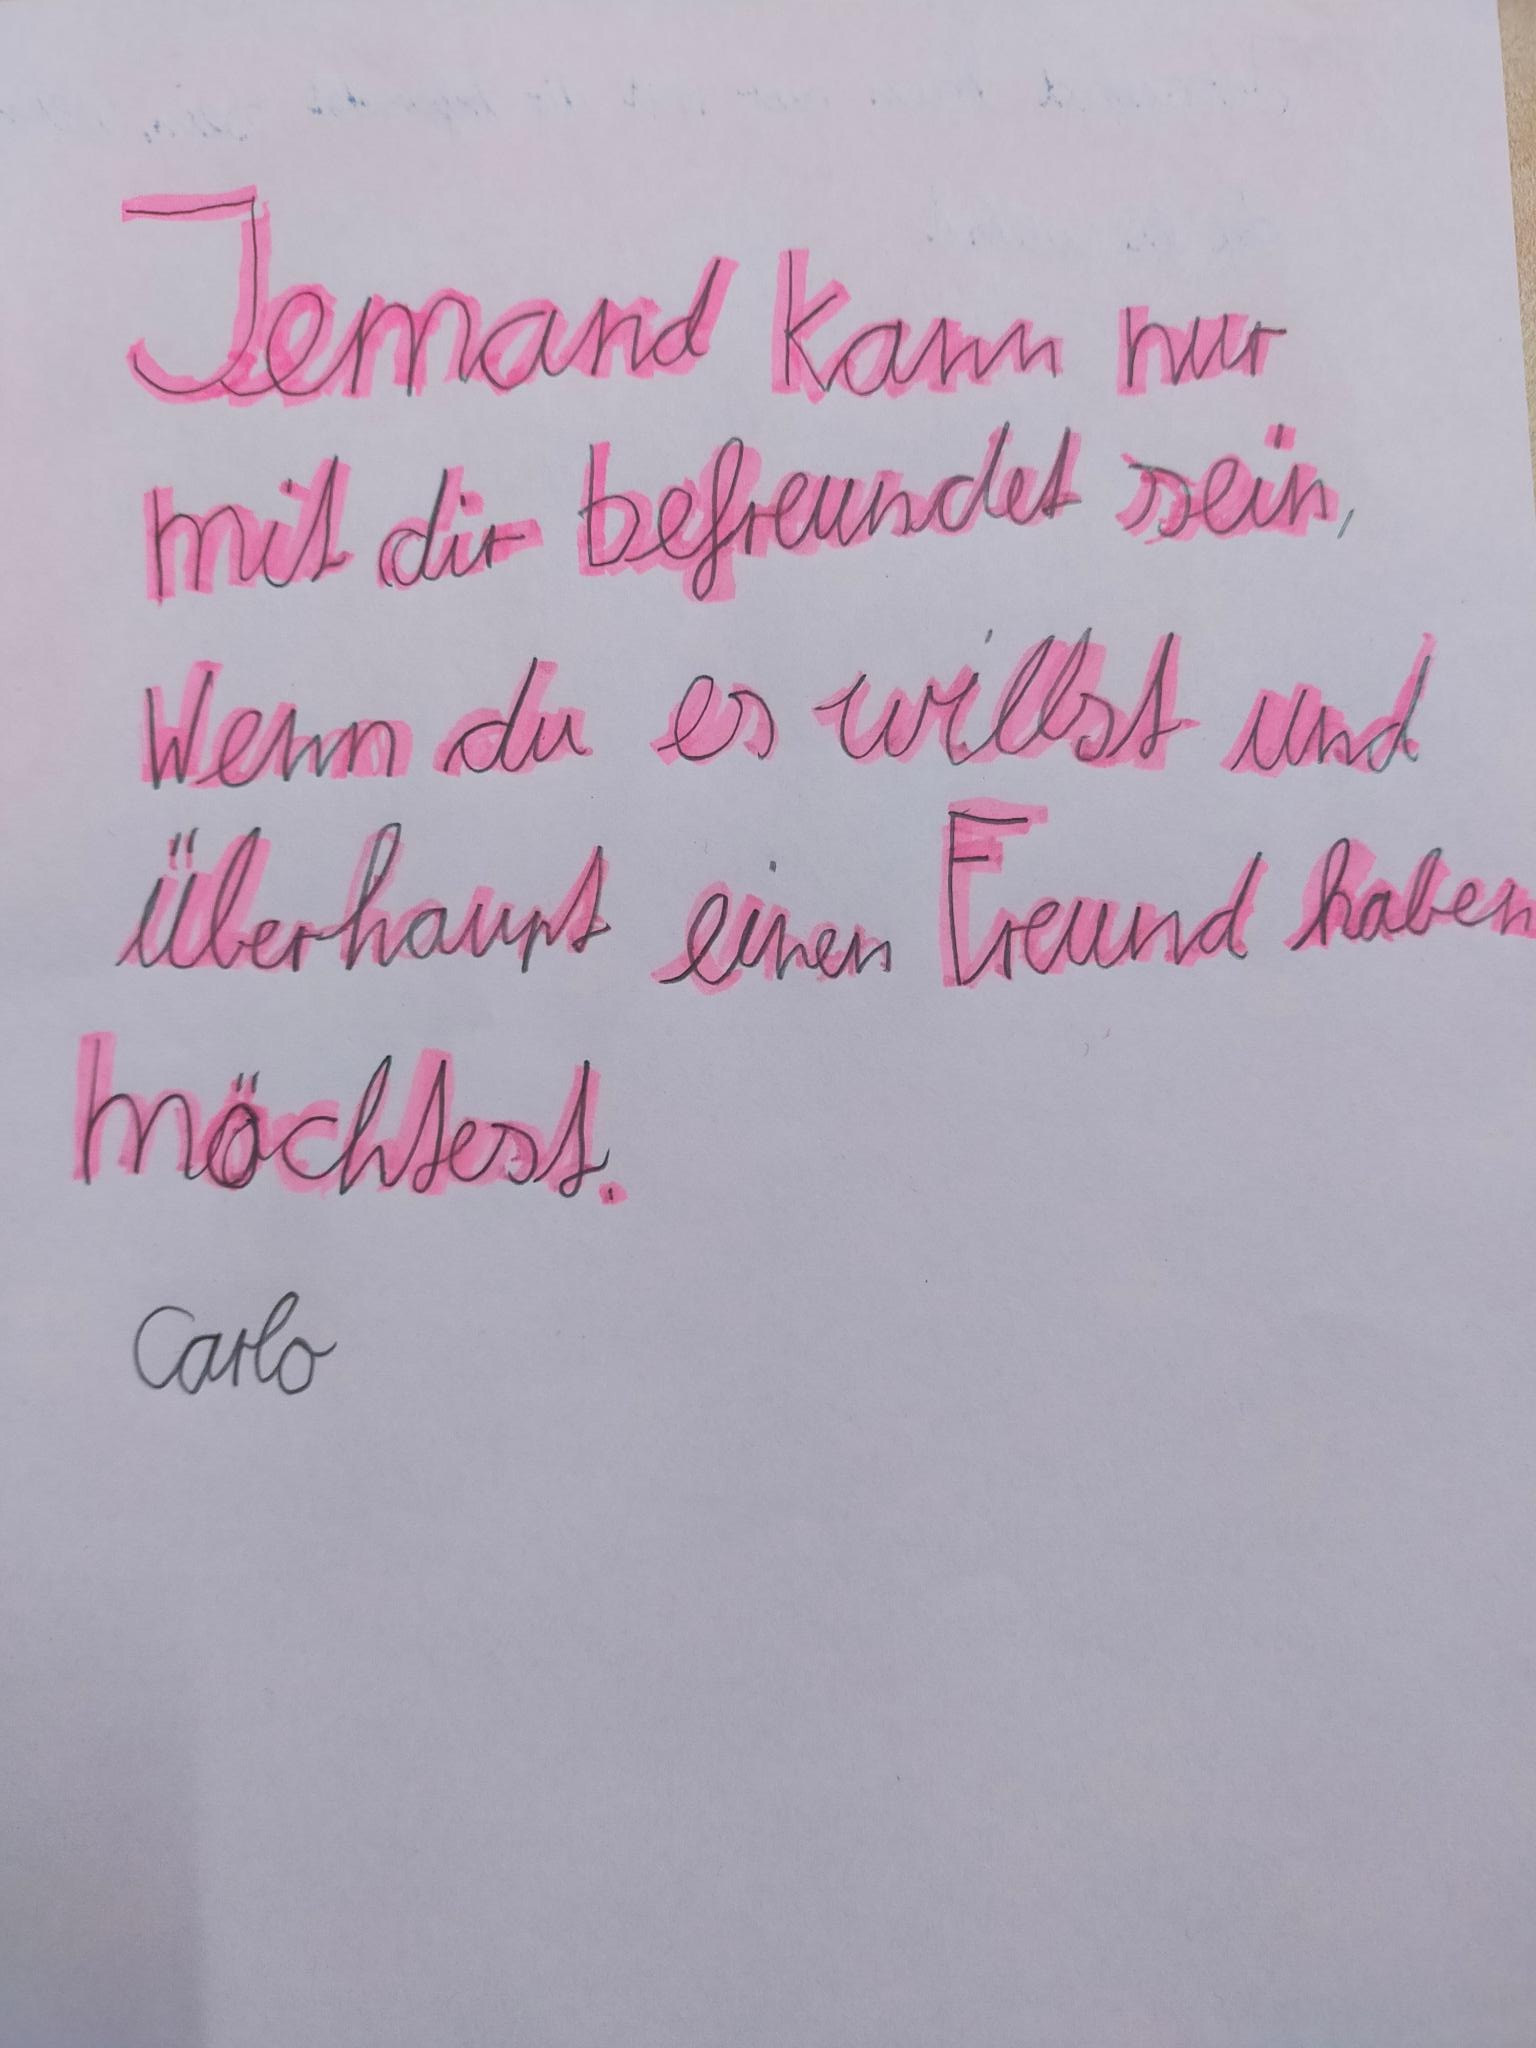 Jemand kann nur
mit dir befreundet sein,
Wenn du es willst und
überhaupt einen Freund haben
möchtest.
Carlo